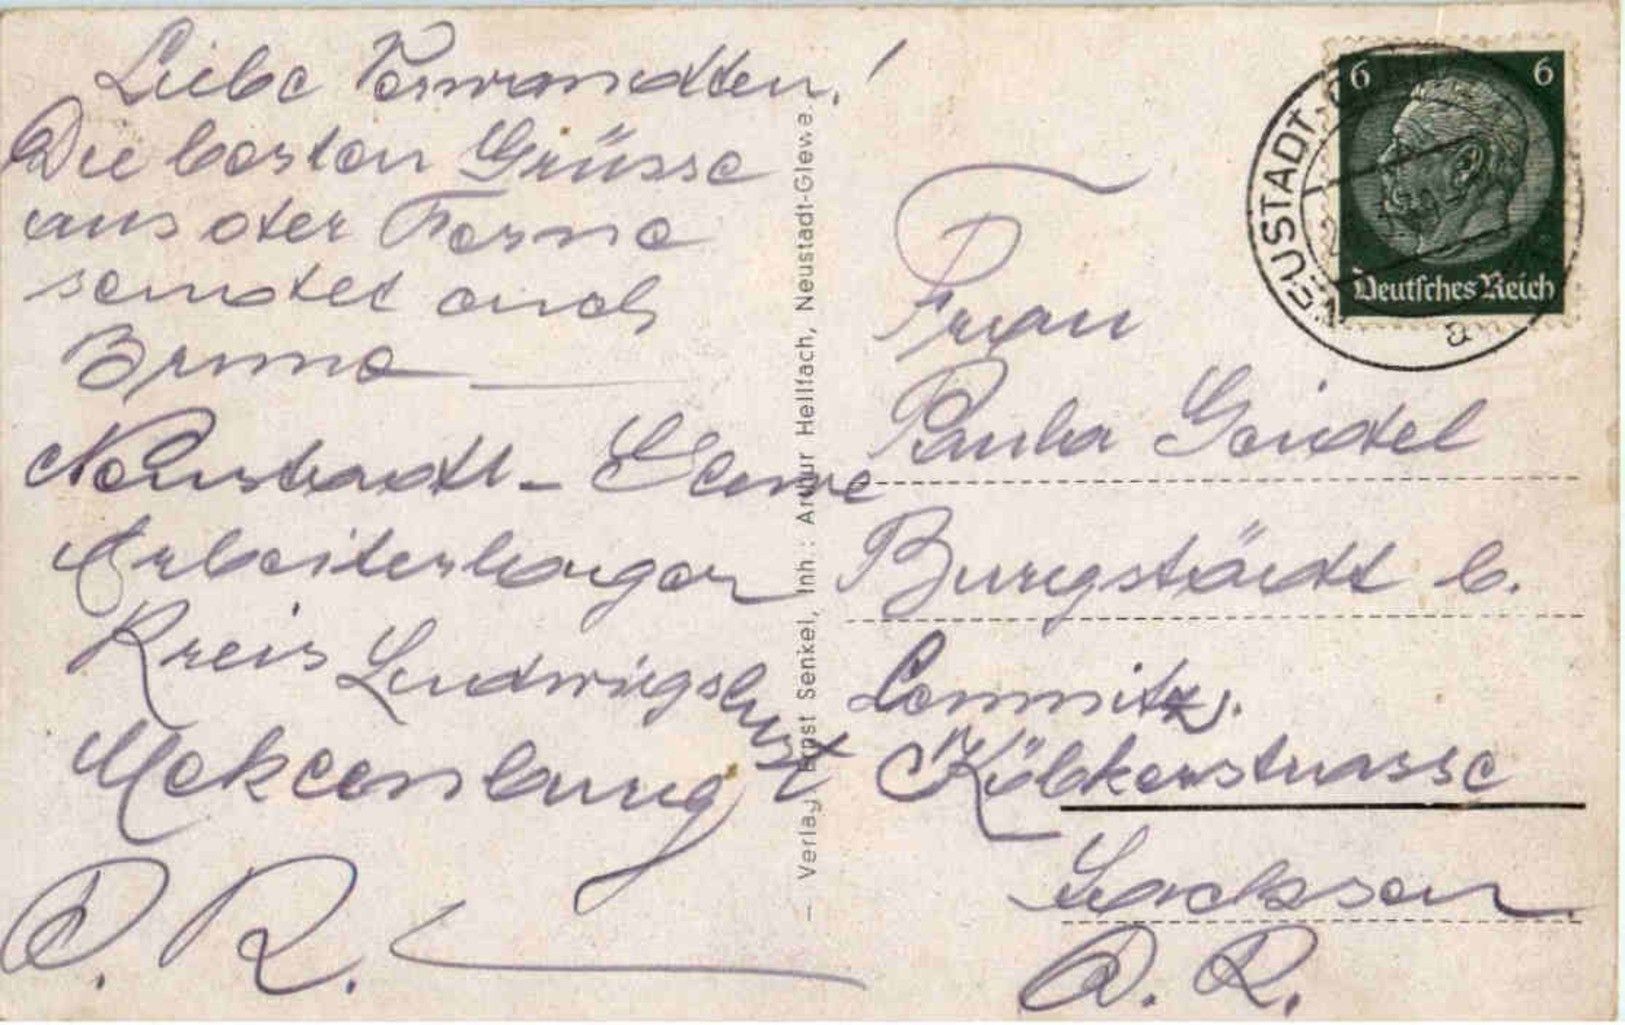 Liebe Verwandten!
Die besten Grüsse
aus der Ferne
sendet euch
Bruno
Neustadt-Glewe
Arbeiterlager
Kreis Ludwigslust
Mekcenburg
D. R.
– Verlag Ernst Senkel, Inh.: Artur Hellfach, Neustadt-Glewe.
6 6
Deutsches Reich
NEUSTADT
a
Frau
Paula Geidel
Burgstädt b.
Cemnitz.
Sachsen
D. R.